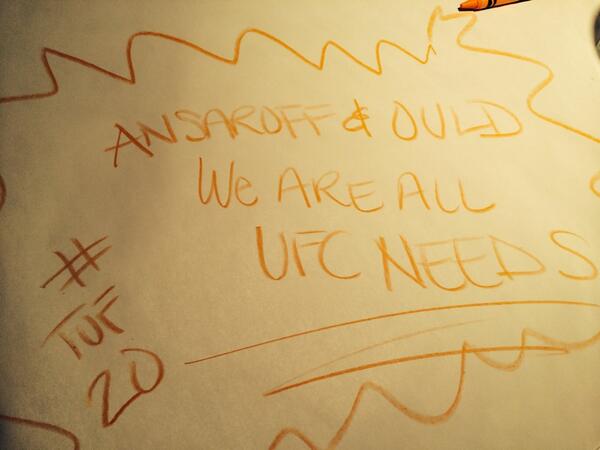 ANSAROFF & OULD
We ARE ALL
UFC NEEDS
#
TUF
20